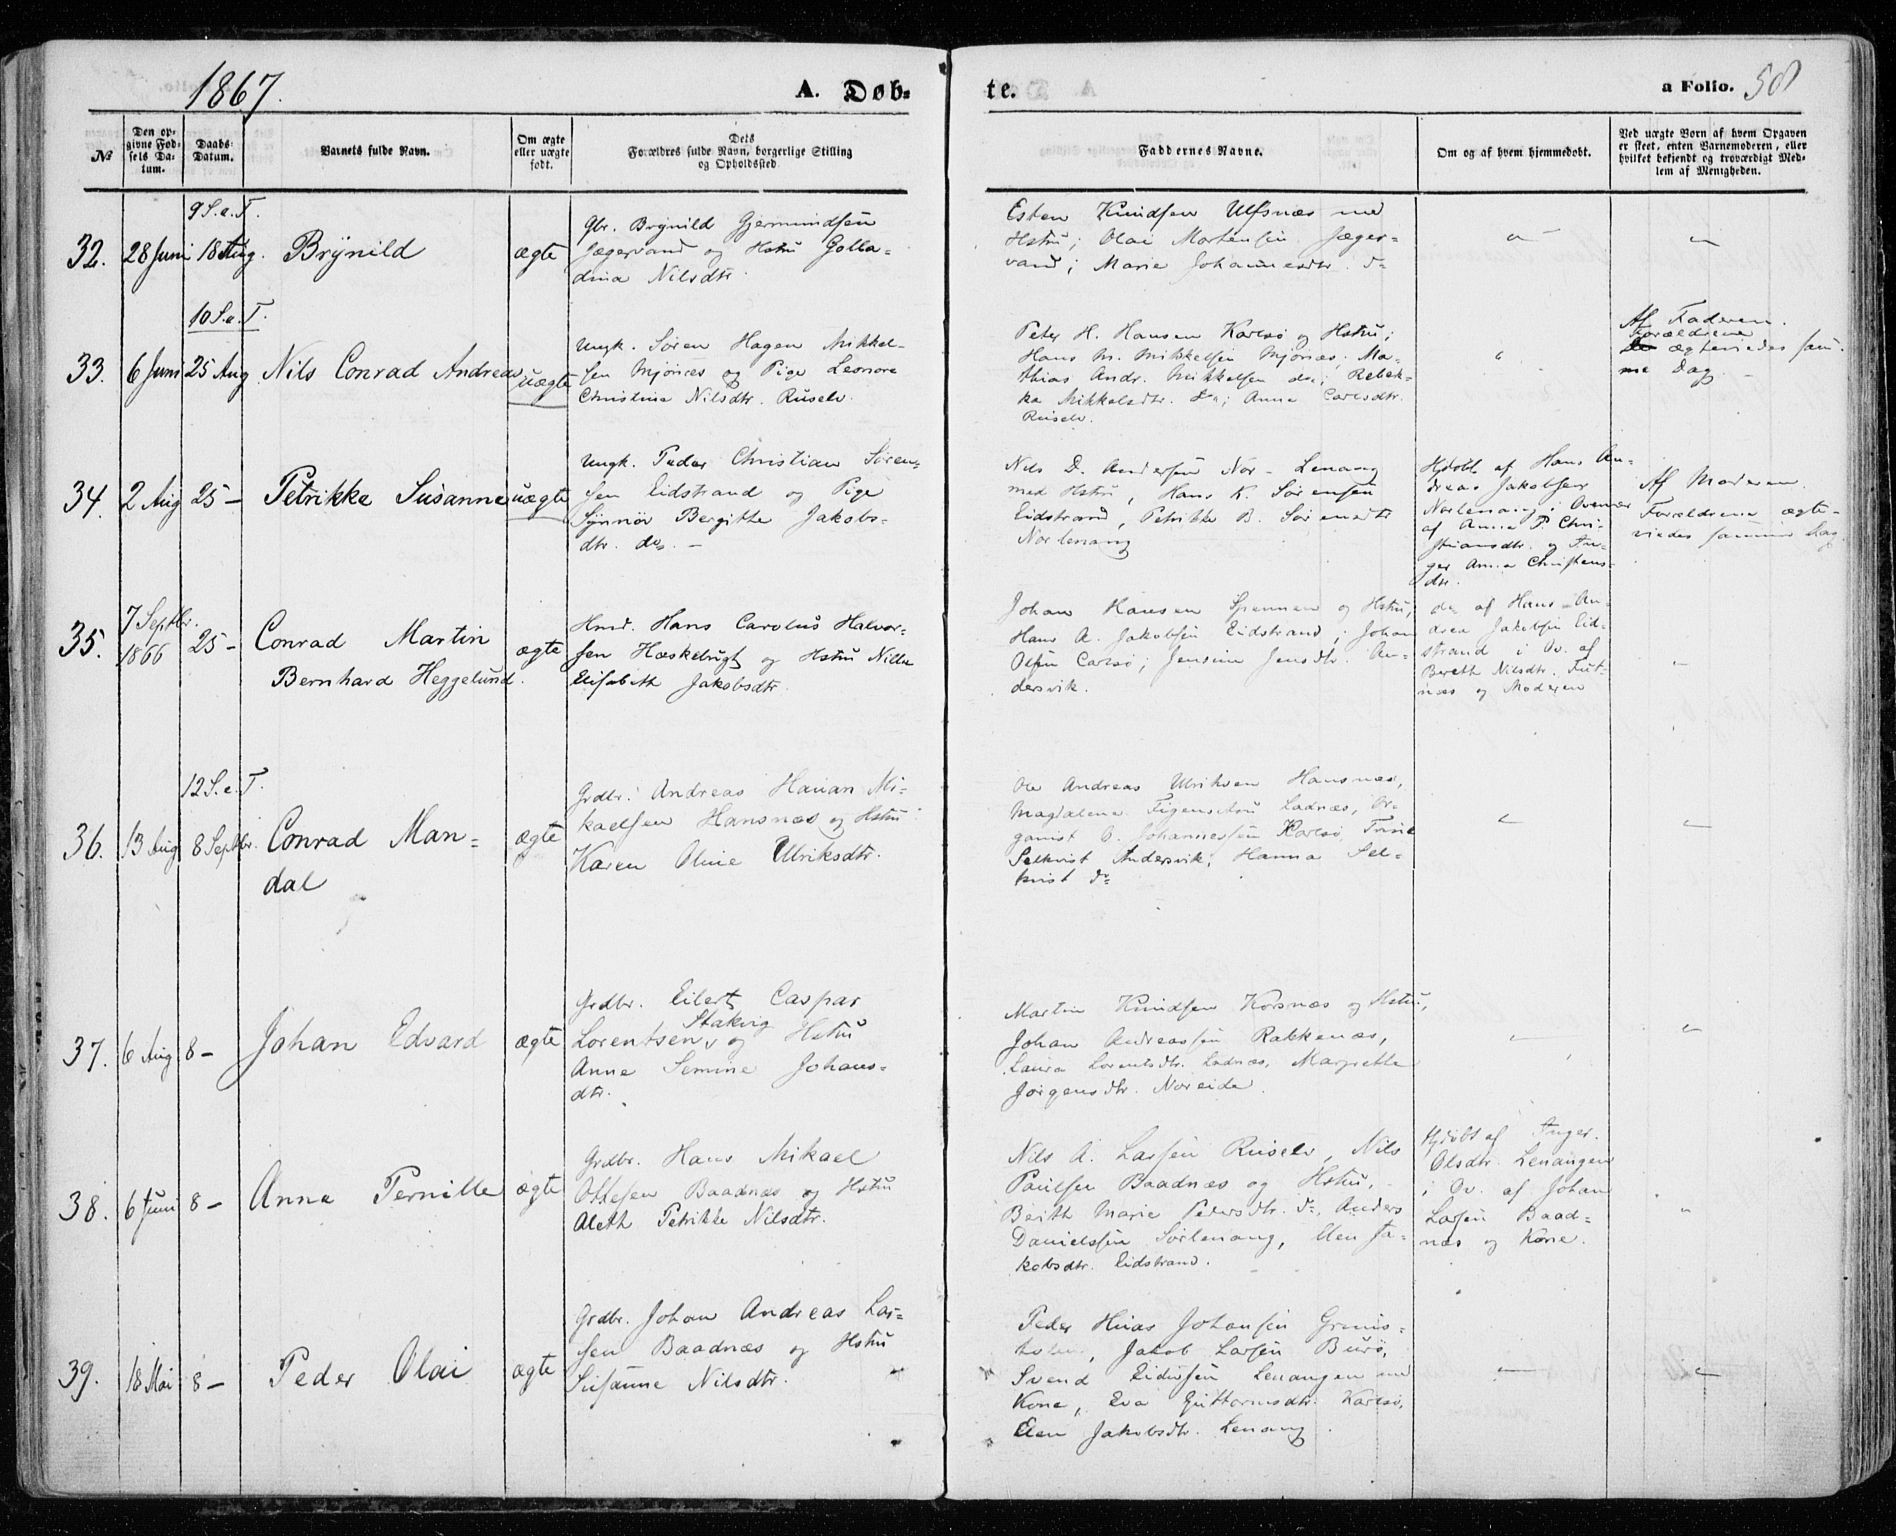 1867.
A. Døb-
te.
a Folio. 50
№
Den op-
givne Fød-
sels Da-
tum.
Daabs-
Datum.
Barnets fulde Navn.
Om ægte
eller uægte
født.
Dets
Forældres fulde Navn, borgerlige Stilling
og Opholdssted.
Faddernes Navne.
Om og af hvem hjemmedøbt.
Ved uægte Børn af hvem Opgaven
er skeet, enten Barnemoderen, eller
hvilket bekjendt og troværdigt Med-
lem af Menigheden.
9 S. e. T.
32. 28 Juni 18 Aug. Brynild ægte
Gbr. Brynild Gjermundsen
Jægervand og Hstru Golla-
dina Nilsdtr.
Esten Knudsen Ulfsnæs med
Hstru; Olai Mortensen Jæger-
vand; Marie Johannesdtr. do
10 S. e. T.
33. 6 Juni 25 Aug Nils Conrad Andreas uægte
Ungk. Søren Hagen Mikkel-
sen Mjønæs og Pige Leonore
Christine Nilsdtr. Ruselv.
Peter H. Hansen Karlsø og Hstru;
Hans M. Mikkelsen Mjønæs, Ma-
thias Andr. Mikkelsen do; Rebek-
ka Mikkelsdtr. do; Anne Carlsdtr.
Ruselv.
Af Faderen.
Forældrene
ægteviedes sam-
me Dag.
34. 2 Aug 25 — Petrikke Susanne uægte
Ungk. Peder Christian Søren-
sen Eidstrand og Pige
Synnøv Bergitte Jakobs-
dtr. do. —
Nils D. Andersen Nor-Lenang
med Hstru, Hans K. Sørensen
Eidstrand, Petrikke B. Sørensdtr
Norlenang
Hjdøbt af Hans An-
dreas Jakobsen
Norlenang i Overvær
af Anne P. Chri-
stiansdtr. og In-
ger Anna Christens-
dtr.
Af Moderen.
Forældrene ægte-
viedes samme Dag
35. 7 Septbr. 1866 25 — Conrad Martin
Bernhard Heggelund. ægte
Hmd. Hans Carolus Halvor-
sen Hæskebugt og Hstru Nille
Elisabeth Jakobsdtr.
Johan Hansen Spennen og Hstru;
Hans A. Jakobsen Eidstrand; Johan
Olsen Carlsø; Jensine Jensdtr. An-
dersvik.
do af Hans An-
drea Jakobsen Eid-
strand i Ov. af
Bereth Nilsdtr.
næs og Moderen
12 S. e. T.
36. 13 Aug 8 Septbr. Conrad Man-
dal ægte
Grdbr. Andreas Hanan Mi-
kaelsen Hansnæs og Hstru
Karen Oline Ulriksdtr.
Ole Andreas Ulriksen Hansnæs,
Magdalene Figenschou Ladnæs, Or-
ganist O. Johannessen Karlsø,
Selkvist Andersvik; Hanna Sel-
kvist do
37. 6 Aug 8 — Johan Edvard ægte
Grdbr. Eilert Caspar
Lorentsen Stakvig og Hstru
Anne Semine Johans-
dtr.
Martin Knudsen Korsnæs og Hstru,
Johan Andreassen Rakkenæs,
Laura Lorentsdtr. Ladnæs, Margrethe
Jørgensdtr. Noreide.
38. 6 Juni 8 — Anne Pernille ægte
Grdbr. Hans Mikael
Ottesen Baadnæs og Hstru
Aleth Petrikke Nilsdtr.
Nils A. Larsen Ruselv, Nils
Paulsen Baadnæs og Hstru,
Berith Marie Pedersdtr. do, Anders
Danielsen Sørlenang, Elen Ja-
kobsdtr. Eidstrand.
Hjdøbt af Inger
Olsdtr. Lenangen
i Ov. af Johan
Larsen Baad-
næs og Kone.
39. 18 Mai 8 — Peder Olai ægte
Grdbr. Johan Andreas Lar-
sen Baadnæs og Hstru
Susanne Nilsdtr.
Peder Johansen Grunds-
Jakob Larsen Burø,
Svend Lenangen med
Kone, Eva Guttormsdtr. Karlsø,
Elen Jakobsdtr. Lenang.